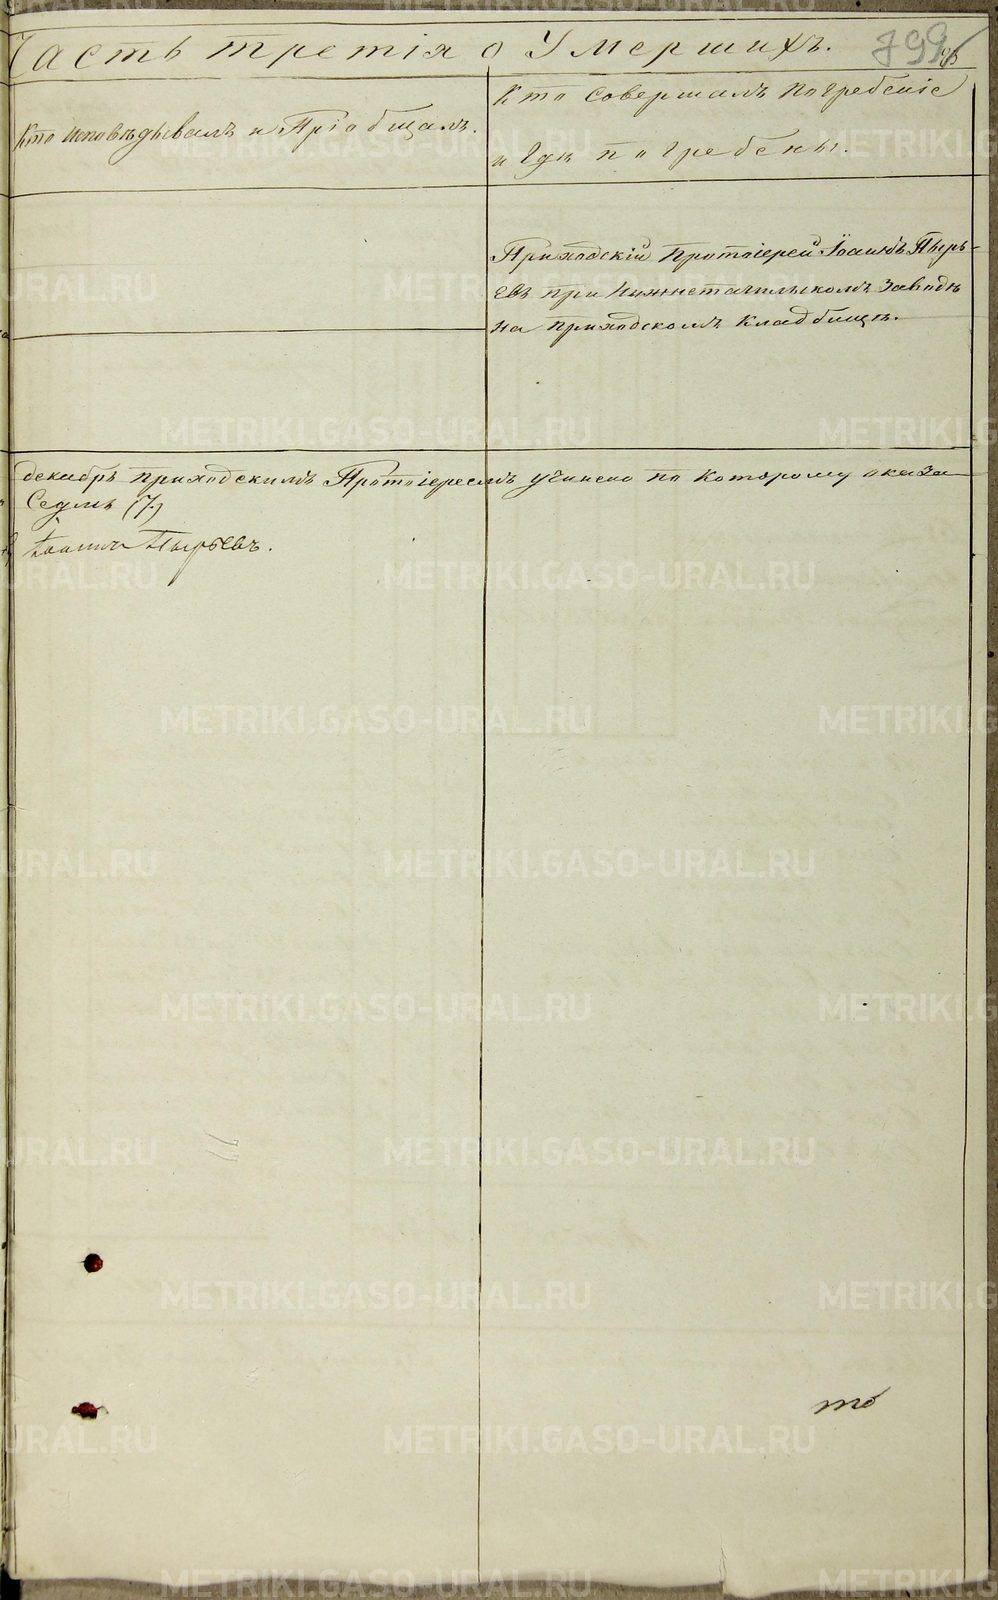 Часть третія о Умершихъ.
799
Кто исповѣдывалъ и Пріобщалъ.
Кто Совершалъ Погребеніе
и Гдѣ погребены.
Приходскій Протоіерей Іоаннъ Пырь-
евъ при Нижнетагильскомъ Заводѣ
на приходскомъ Кладбищѣ.
декабрь приходскимъ Протоіереемъ учинено по Которому оказа
Седмь (7.)
Іоаннъ Пырьевъ.
то
METRIKI.GASO-URAL.RU